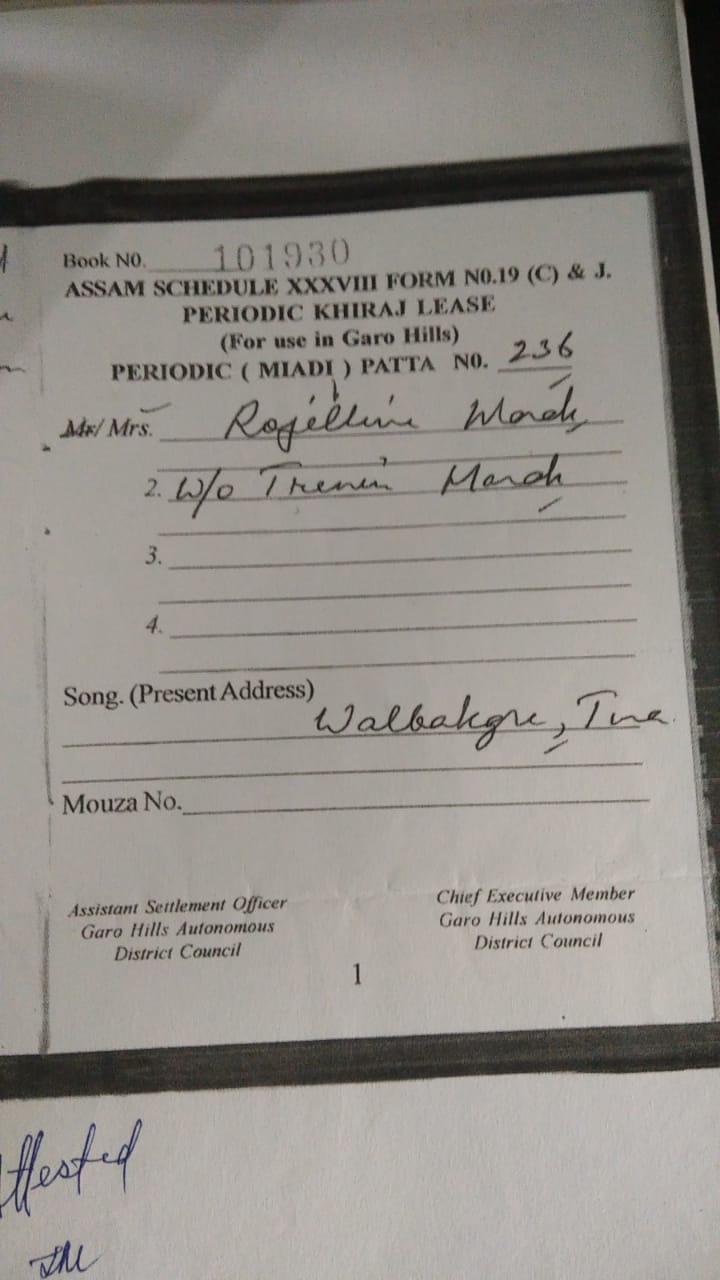 Book N0. 101930
ASSAM SCHEDULE XXXVIII FORM N0.19 (C) & J.
PERIODIC KHIRAJ LEASE
(For use in Garo Hills)
PERIODIC ( MIADI ) PATTA N0. 236
Mr/ Mrs. Rojelline Marak
2. W/o Trenin Marak
3.
4.
Song. (Present Address)
Walbakgre, Tura
Mouza No.
Assistant Settlement Officer
Garo Hills Autonomous
District Council
Chief Executive Member
Garo Hills Autonomous
District Council
1
Attested